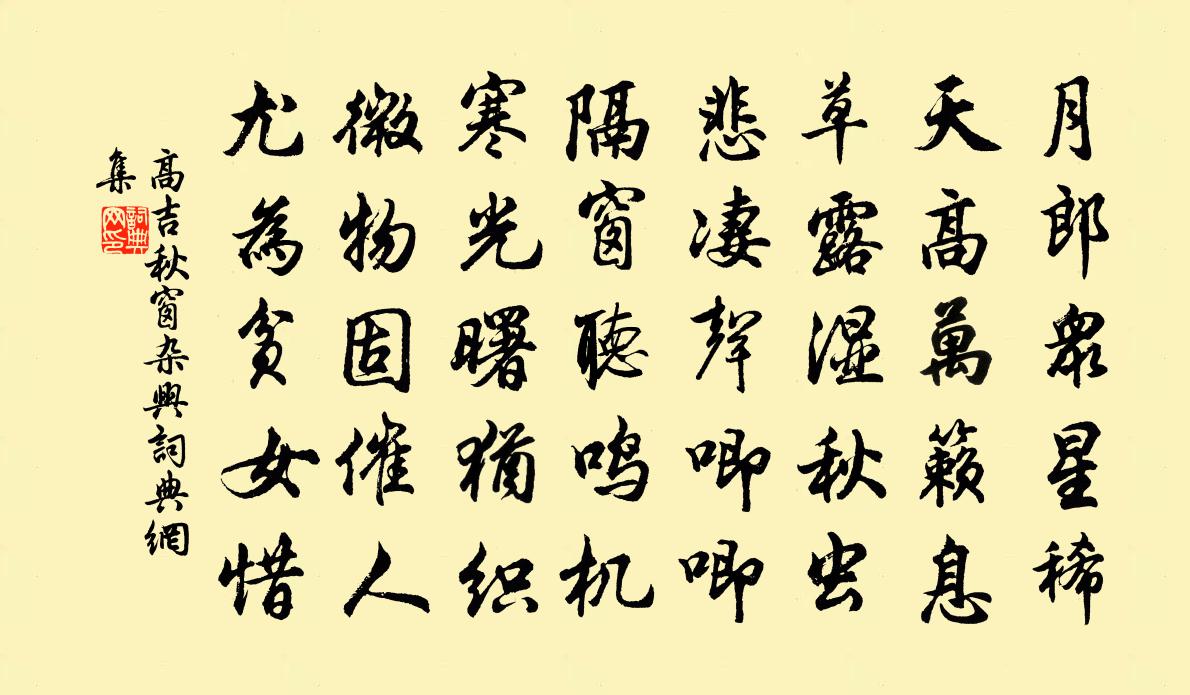 月郎衆星稀
天高萬籟息
草露湿秋虫
悲凄聲唧唧
隔窗聽鸣机
寒光曙猶织
微物固催人
尤為贫女惜
高吉秋窗杂興詞典網
集
詞典网印